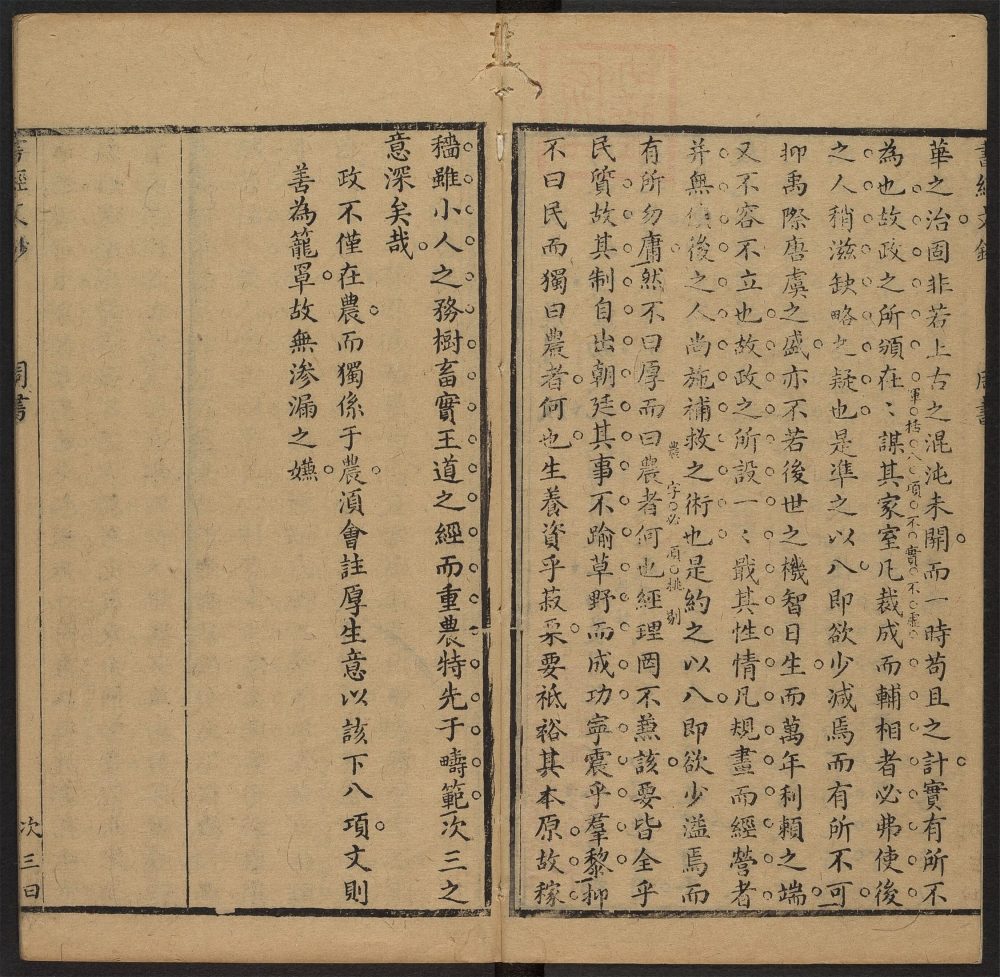 華之治固非若上古之混沌未開而一時苟且之計實有所不
渾括八項不實不虛
為也故政之所頒在〻謀其家室凡裁成而輔相者必弗使後
之人稍滋缺略之疑也是準之以八即欲少減焉而有所不可
抑禹際唐虞之盛亦不若後世之機智日生而萬年利賴之端
又不容不立也故政之所設一〻戢其性情凡規畫而經營者
并無後之人尚施補救之術也是約之以八即欲少溢焉而
農字必須挑剔
有所勿庸然不曰厚而曰農者何也經理罔不兼該要皆全乎
民質故其制自出朝廷其事不踰草野而成功寧震乎羣黎抑
不曰民而獨曰農者何也生養資乎菽粟要祇裕其本原故稼
穡雖小人之務樹畜實王道之經而重農特先于疇範次三之
意深矣哉
政不僅在農而獨係于農湏會註厚生意以該下八項文則
善為籠罩故無滲漏之嫌
書經文鈔
周書
次三曰